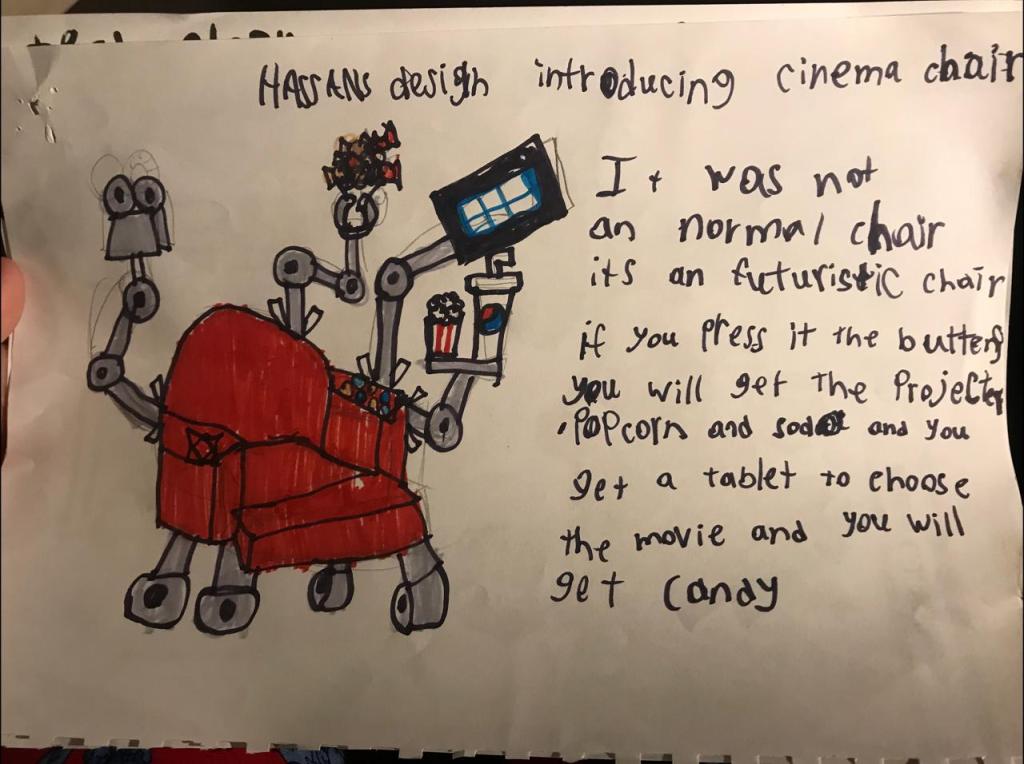 HASSANS design introducing cinema chair
It was not
an normal chair
its an futuristic chair
if you press it the buttens
you will get the Projecter
POPcorn and soda and you
get a tablet to choose
the movie and you will
get candy